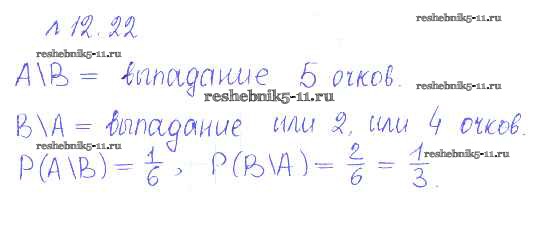 № 12.22
reshebnik5-11.ru
reshebnik5-11.ru
A\B = выпадание 5 очков.
reshebnik5-11.ru
reshebnik5-11.ru
B\A = выпадание или 2, или 4 очков.
reshebnik5-11.ru
reshebnik5-11.ru
P(A\B) = 1/6, P(B\A) = 2/6 = 1/3.